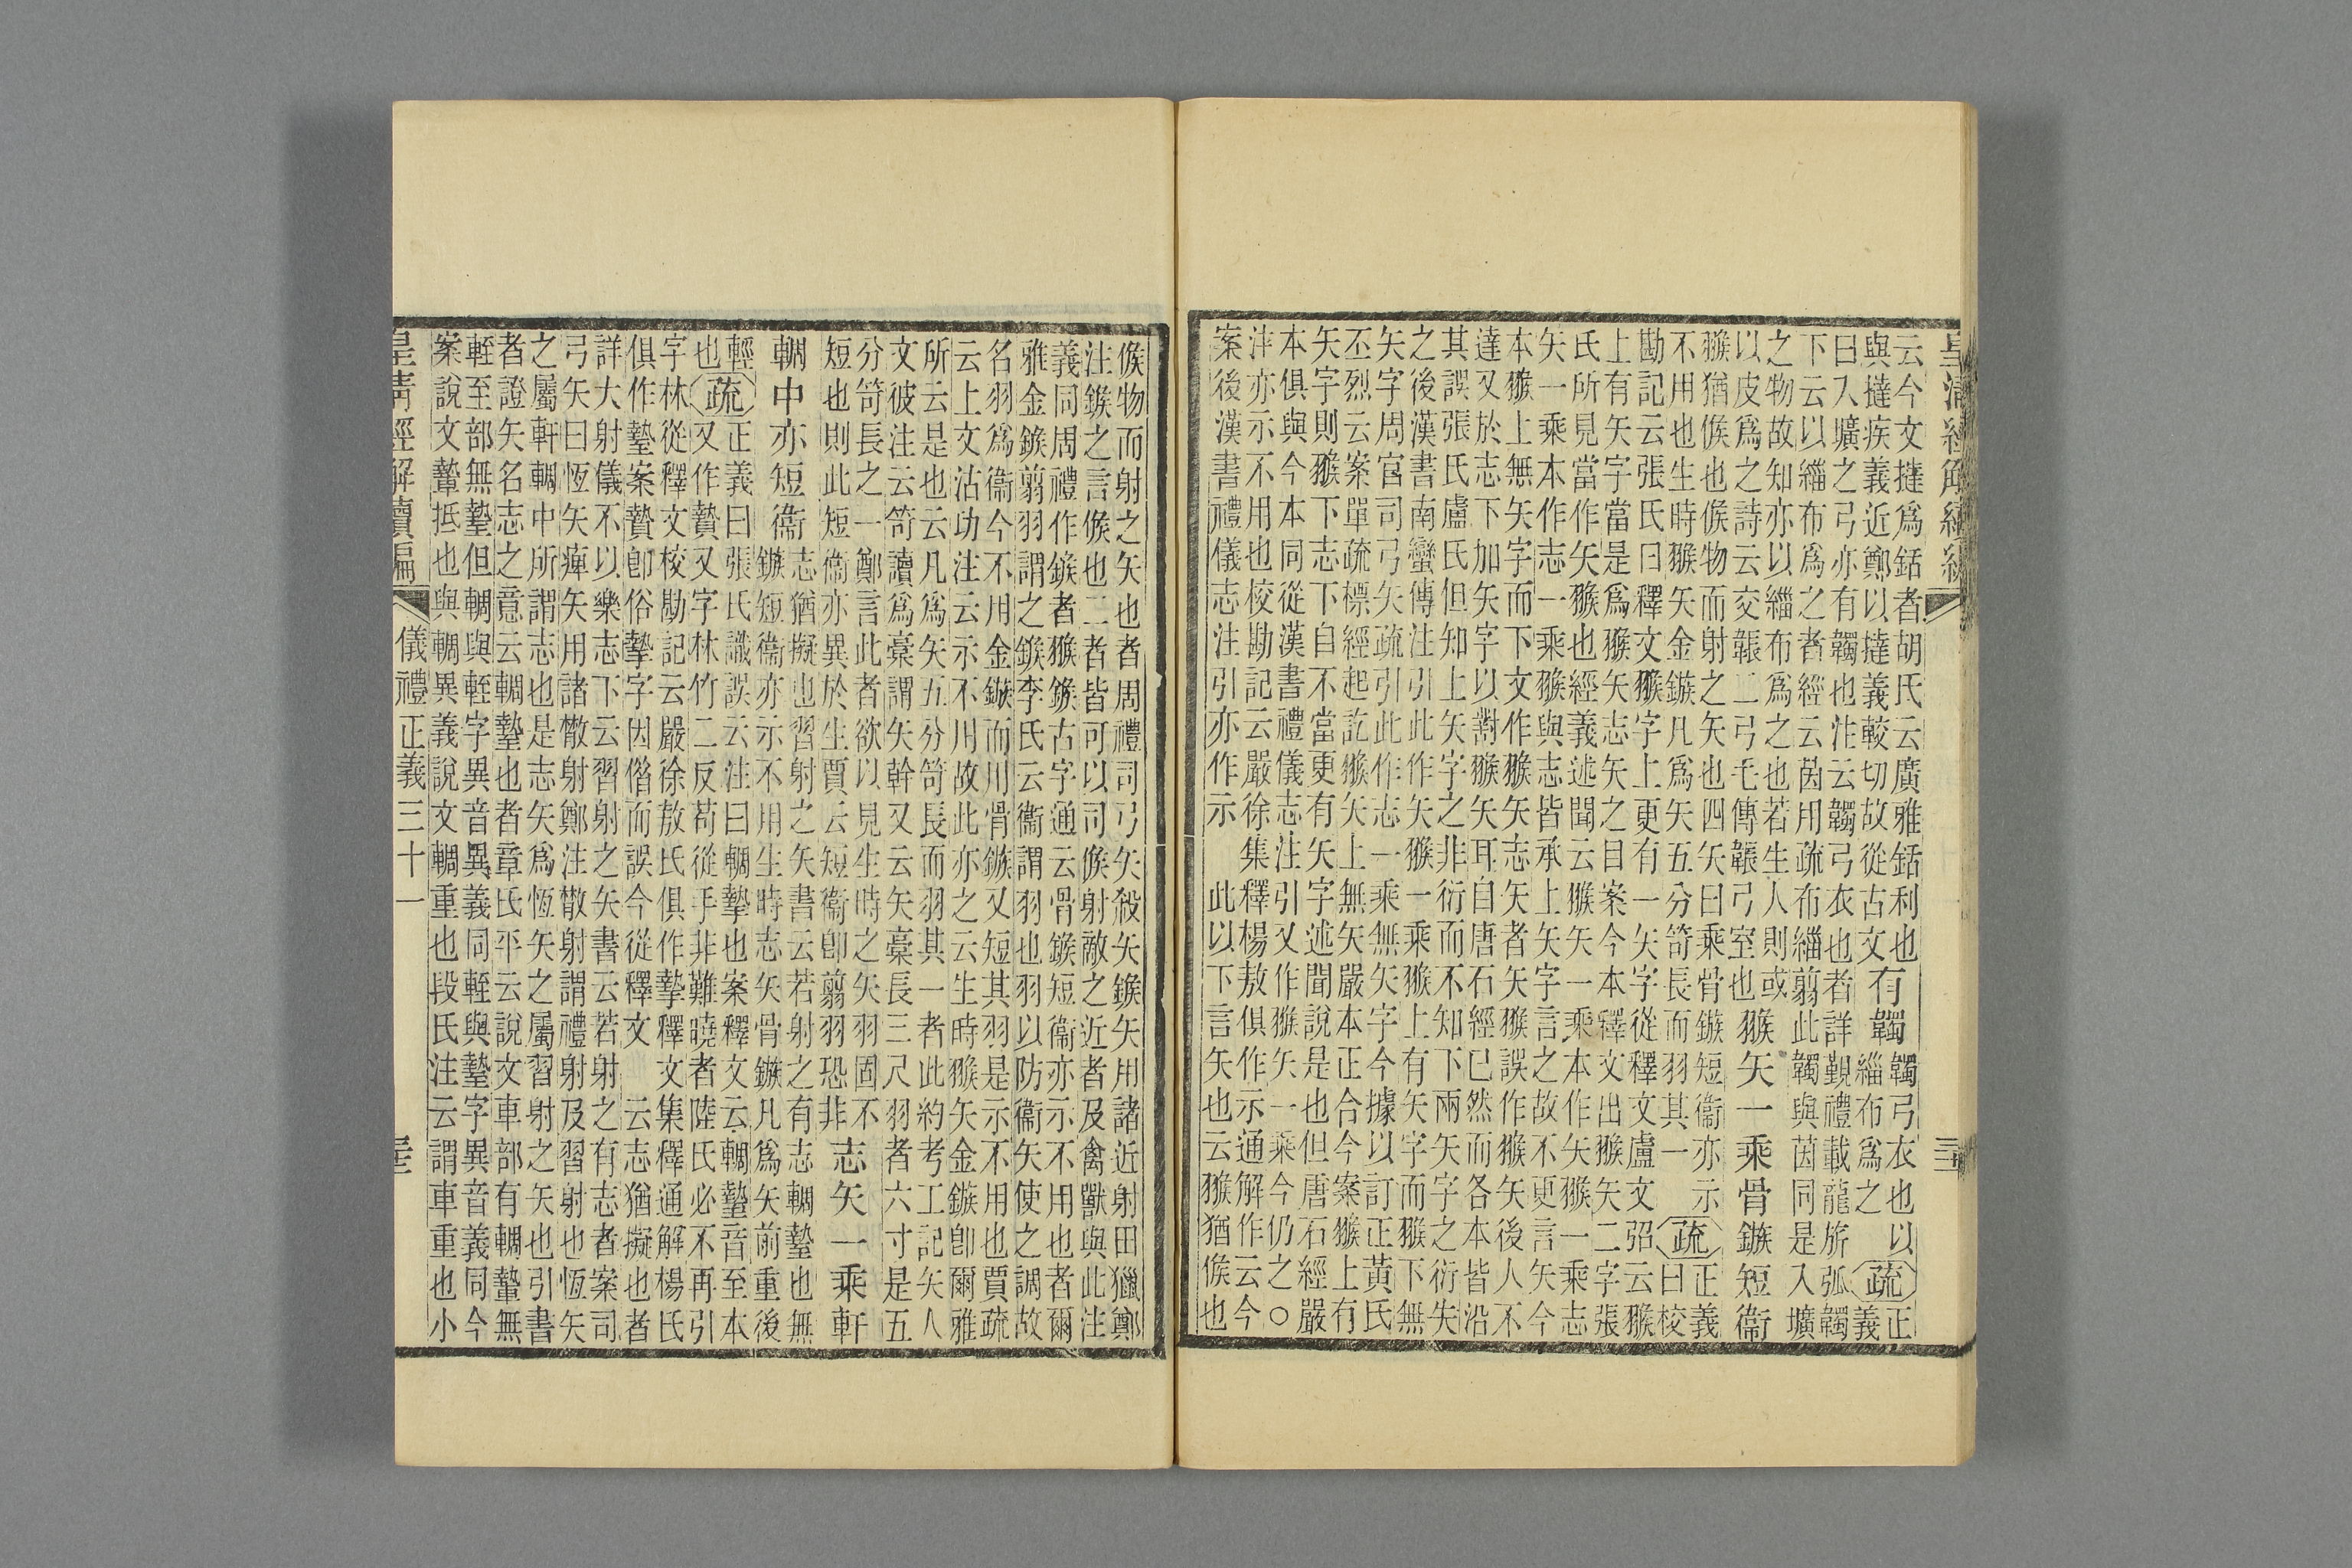 皇清經解續編
云今文撻爲銛者胡氏云廣雅銛利也
與撻疾義近鄭以撻義較切故從古文
有韣
韣弓衣也以
緇布爲之
疏
正
義
曰入壙之弓亦有韣也注云韣弓衣也者詳覲禮載龍旂弧韣
下云以緇布爲之者經云茵用疏布緇翦此韣與茵同是入壙
之物故知亦以緇布爲之也若生人則或
以皮爲之詩云交韔二弓毛傳韔弓室也
翭矢一乘骨鏃短衛
翭猶候也候物而射之矢也四矢曰乘骨鏃短衛亦示
不用也生時翭矢金鏃凡爲矢五分笴長而羽其一
疏
正義
曰校
勘記云張氏曰釋文翭字上更有一矢字從釋文盧文弨云翭
上有矢字當是爲翭矢志矢之目案今本釋文出翭矢二字張
氏所見當作矢翭也經義述聞云翭矢一乘本作矢翭一乘志
矢一乘本作志一乘翭與志皆承上矢字言之故不更言矢今
本翭上無矢字而下文作翭矢志矢者矢翭誤作翭矢後人不
達又於志下加矢字以對翭矢耳自唐石經已然而各本皆沿
其誤張氏盧氏但知上矢字之非衍而不知下兩矢字之衍失
之後漢書南蠻傳注引此作矢翭一乘翭上有矢字而翭下無
矢字周官司弓矢疏引此作志一乘無矢字今據以訂正黃氏
丕烈云案單疏標經起訖翭矢上無矢嚴本正合今案翭上有
矢字則翭下志下自不當更有矢字述聞說是也但唐石經嚴
本俱與今本同從漢書禮儀志注引又作翭矢一乘今仍之○
注亦示不用也校勘記云嚴徐集釋楊敖俱作示通解作云今
案後漢書禮儀志注引亦作示 此以下言矢也云翭猶候也
候物而射之矢也者周禮司弓矢殺矢鍭矢用諸近射田獵鄭
注鍭之言候也二者皆可以司候射敵之近者及禽獸與此注
義同周禮作鍭者翭鍭古字通云骨鏃短衛亦示不用也者爾
雅金鏃翦羽謂之鍭李氏云衛謂羽也羽以防衛矢使之調故
名羽爲衛今不用金鏃而用骨鏃又短其羽是示不用也賈疏
云上文沽功注云示不用故此亦之云生時翭矢金鏃卽爾雅
所云是也云凡爲矢五分笴長而羽其一者此約考工記矢人
文彼注云笴讀爲稾謂矢幹又云矢稾長三尺羽者六寸是五
分笴長之一鄭言此者欲以見生時之矢羽固不
短也則此短衛亦異於生賈云短衛卽翦羽恐非
志矢一乘軒
輖中亦短衛
志猶擬也習射之矢書云若射之有志輖墊也無
鏃短衛亦示不用生時志矢骨鏃凡爲矢前重後
輕
也
疏
正義曰張氏識誤云注曰輖摯也案釋文云輖墊音至本
又作贄又字林竹二反苟從手非難曉者陸氏必不再引
字林從釋文校勘記云嚴徐敖氏俱作摯釋文集釋通解楊氏
俱作墊案贄卽俗摯字因偕而誤今從釋文 云志猶擬也者
詳大射儀不以樂志下云習射之矢書云若射之有志者案司
弓矢曰恆矢痺矢用諸散射鄭注散射謂禮射及習射也恆矢
之屬軒輖中所謂志也是志矢爲恆矢之屬習射之矢也引書
者證矢名志之意云輖墊也者章氏平云說文車部有輖䡹無
輊至部無墊但輖與輊字異音異義同輊與墊字異音義同今
案說文䡹抵也與輖異義說文輖重也段氏注云謂車重也小
皇清經解續編 儀禮正義三十一